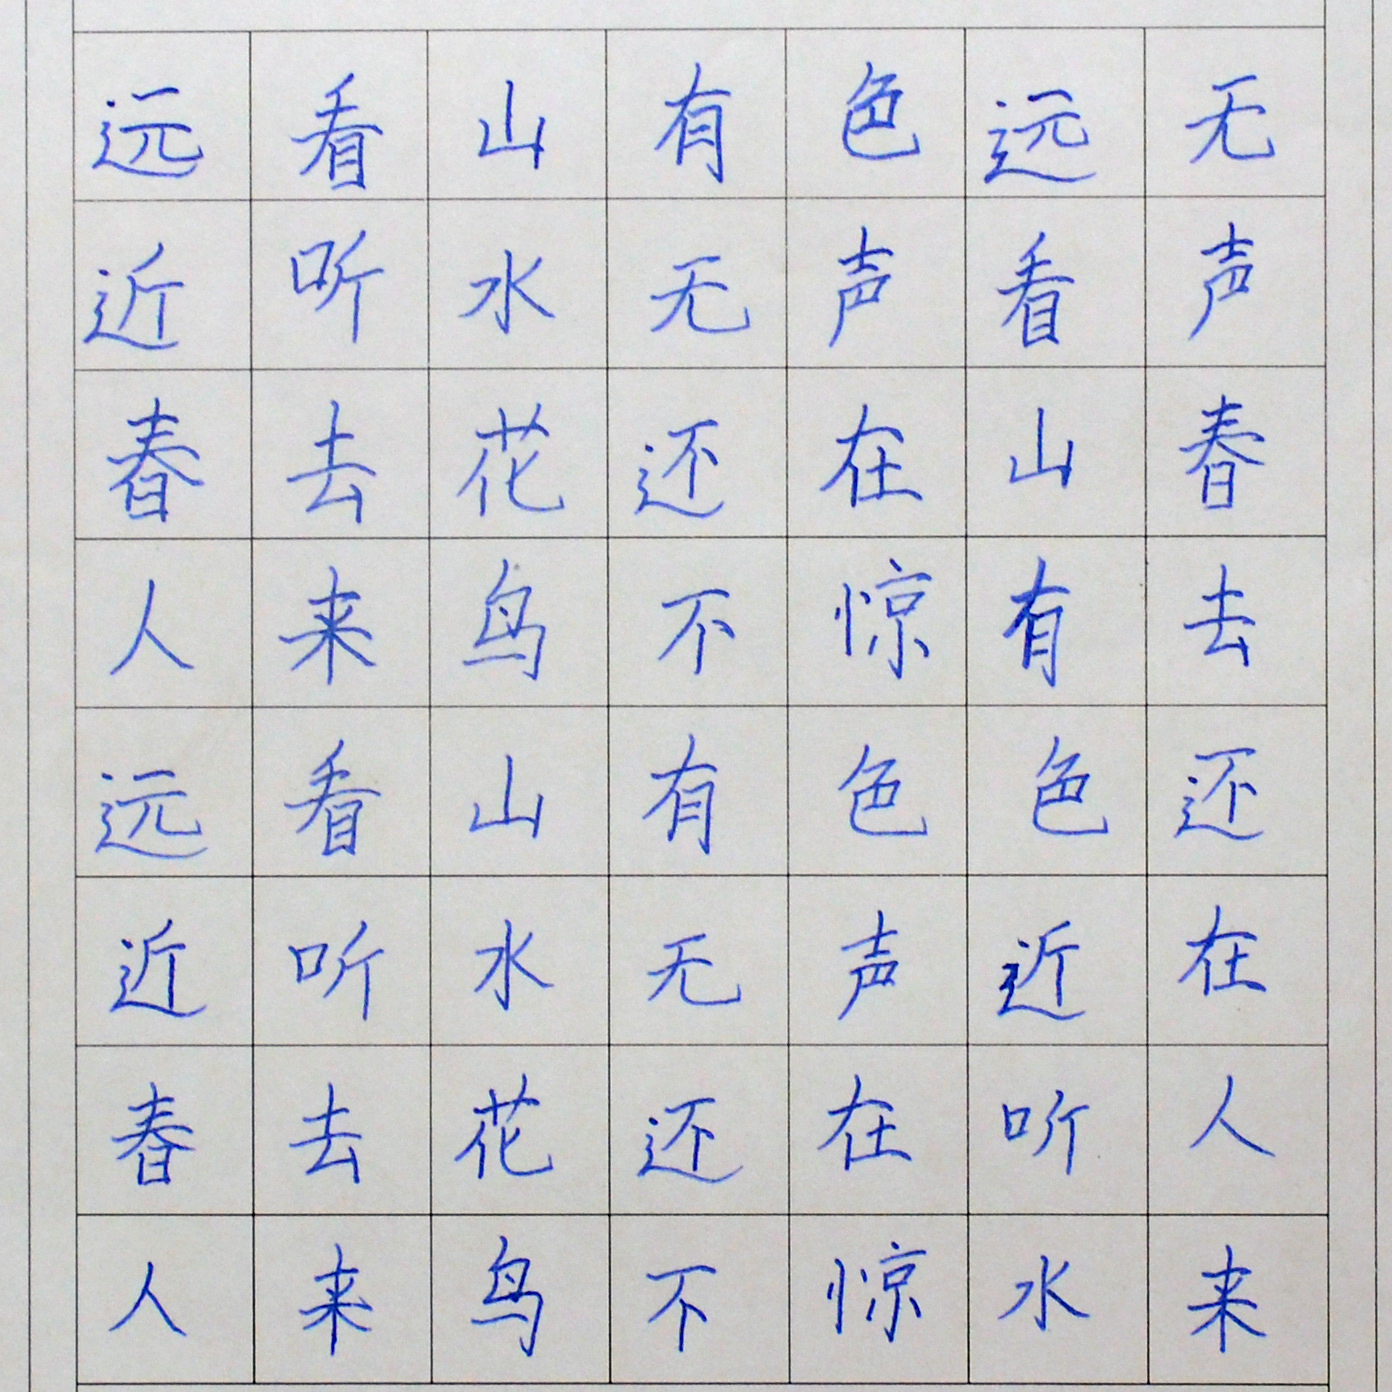 远看山有色远无
近听水无声看声
春去花还在山春
人来鸟不惊有去
远看山有色色还
近听水无声近在
春去花还在听人
人来鸟不惊水来